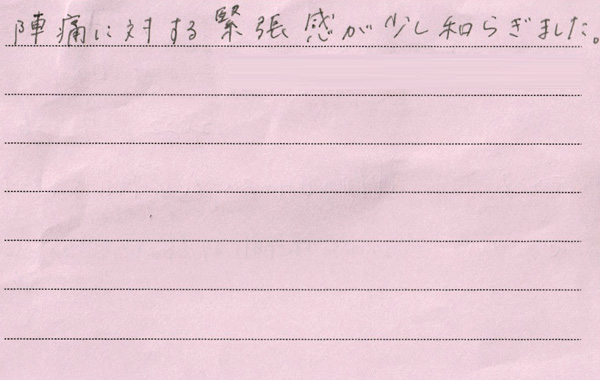 陣痛に対する緊張感が少し和らぎました。